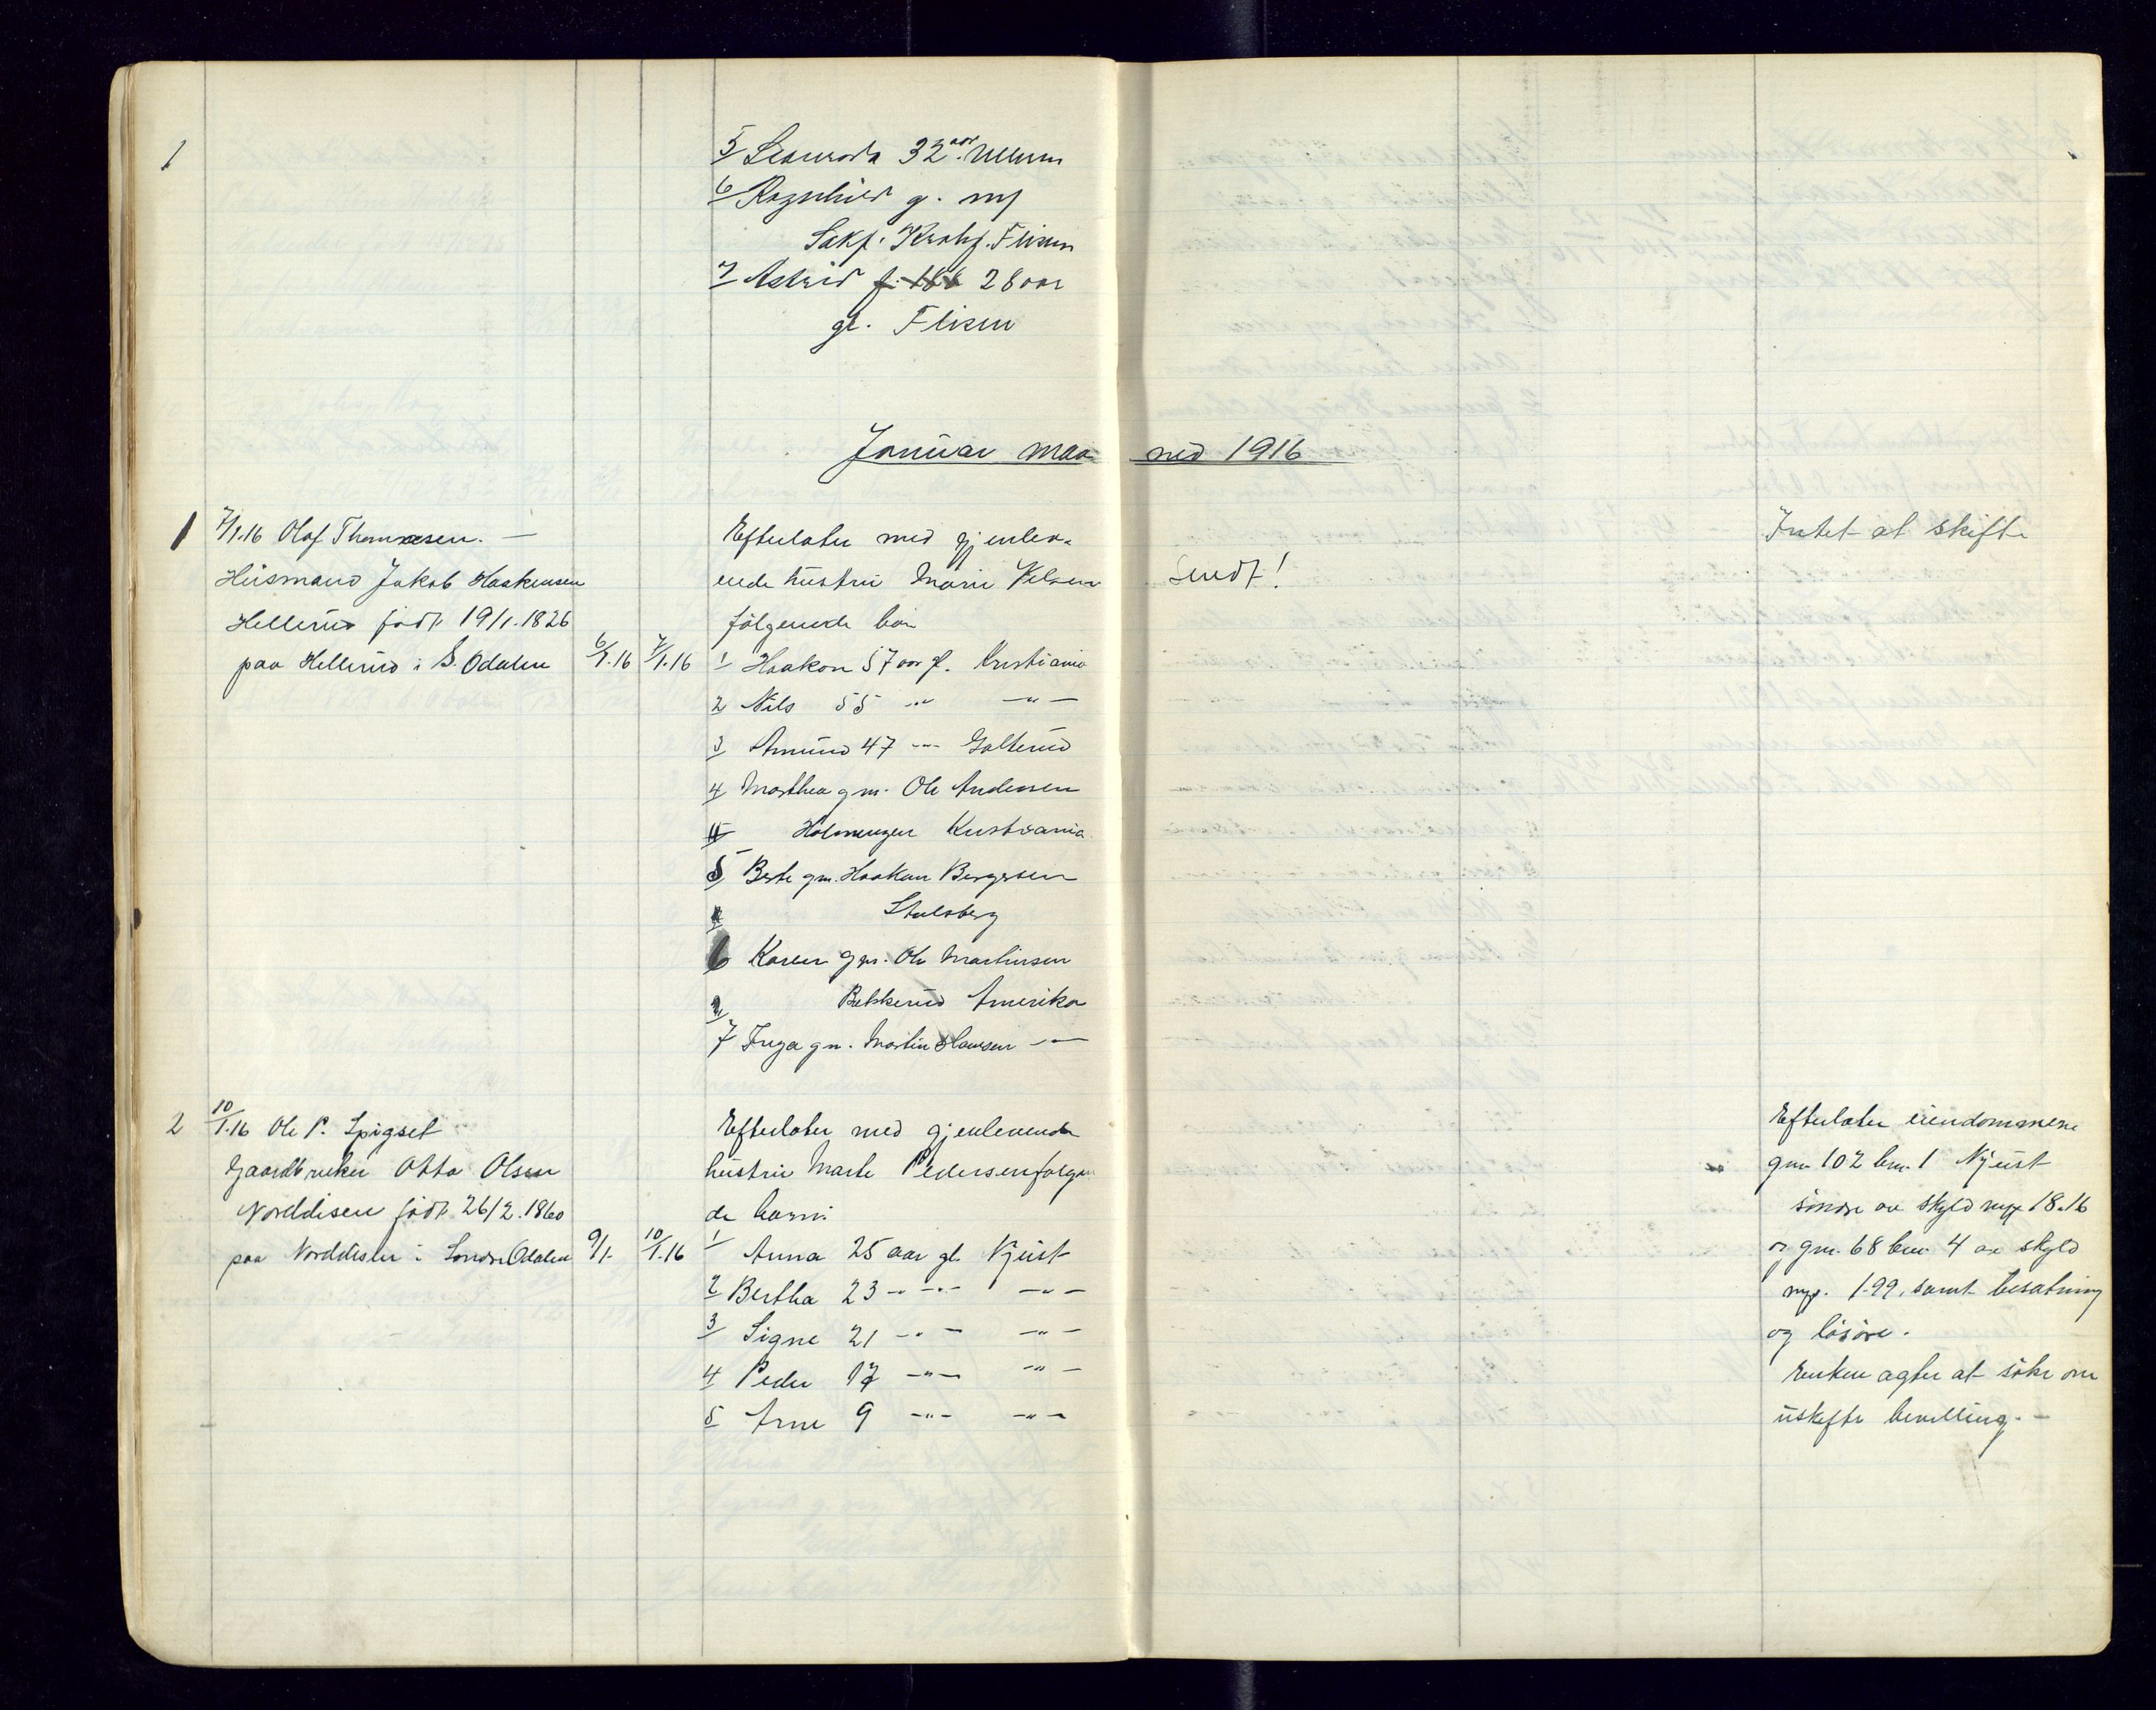 1
5 32 aar
6 Ragnhild g. m/
Sakf. Flisen
7 Astrid f. 188 28 aar
gl. Flisen
Januar maaned 1916
1 7/1.16 Olaf Thomasen. —
Husmand Jakob Haakensen
Hellerud født 19/1.1826
paa Hellerud i S. Odalen 6/1.16 7/1.16
Efterlater med gjenlev-
ende hustru Marie Nilsen
følgende
1 Haakon 57 aar gl. Kristiania
2 Nils 55 -"- -"-
3 Amund 47 -"- Galterud
4 Marthea gm. Ole Andersen
Holmengen Kristiania
5 Berte gm. Haakon Bergersen
Stulsberg
6 Karen gm. Ole Martinsen
Bekkerud Amerika
7 Inga gm. Martin Hansen -"-
Sendt!
Intet at skifte
2 10/1.16 Ole P. Spigset
Gaardbruker Otto Olsen
Norddisen født 26/2.1860
paa Norddisen i Søndre Odalen 9/1. 10/1.16
Efterlater med gjenlevende
hustru Marte Pedersen følgen
de barn:
1 Anna 25 aar gl. Njust
2 Bertha 23 -"- -"- -"-
3 Signe 21 -"- -"-
4 Peder 17 -"- -"-
5 Arne 9 -"- -"-
Efterlater eiendommene
gm 102 bm. 1 Njust
søndre av skyld 18.16
og gm. 68 bm 4 av skyld
1.99, samt besætning
og løsøre.
Enken agter at søke om
uskifte bevilling. —